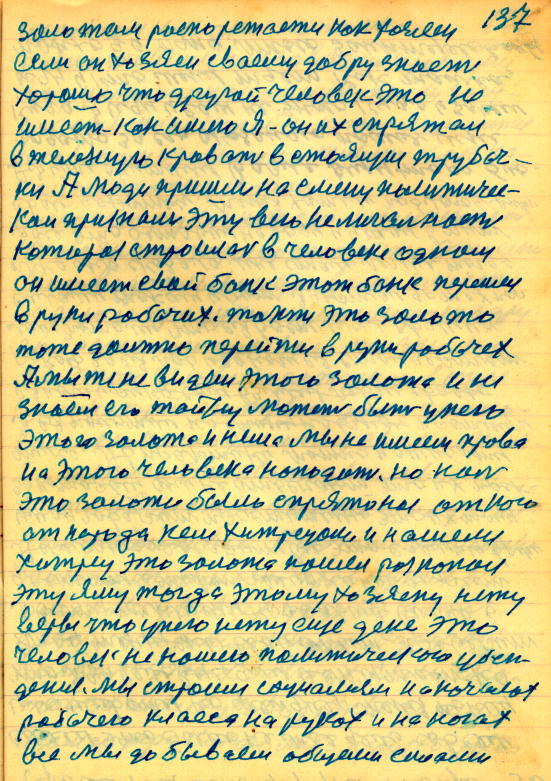 137
золотам роспоретаети как хозяен
если он хозяен своему добру знает
хорошо что другой человек это не
имеет. как имею Я - он их спрятал
в железную кровать в стоящии трубоч-
ки А люди пришли на смену политичес-
кай признали эту всю нелигалность
которая строилась в человеке одном
он имеет свой банк этот банк перешел
в руки робочих. такжи это золото
тоже должно перейти в руки робочех
А мы же не видем этого золота и не
знаем его тайну может быть у него
этого золота и неша мы не имеем прова
на этого человека нападать. но коль
это золото было спрятоно от кого
от народа кем хитрецом и нашели
хитрец это золото нашел роскопал
эту яму тогда этому хозяену нету
веры что у него нету еще дене это
человек не нашего политического убеж-
дения. мы строим социализм на началах
рабочего класса на руках и на ногах
все мы добываем общеми силами